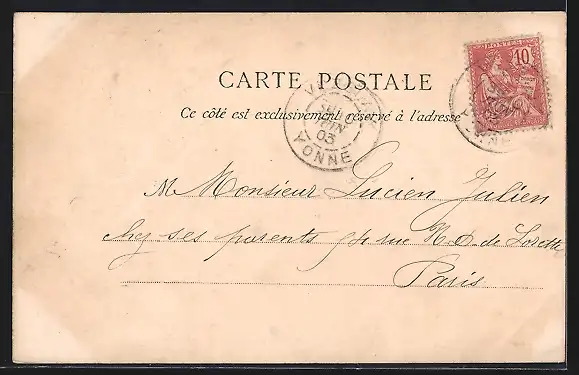 CARTE POSTALE
Ce côté est exclusivement réservé à l'adresse
POSTES
10
JUIN
03
YONNE
M Monsieur Lucien Julien
chez ses parents rue N. D. de Lorette
Paris